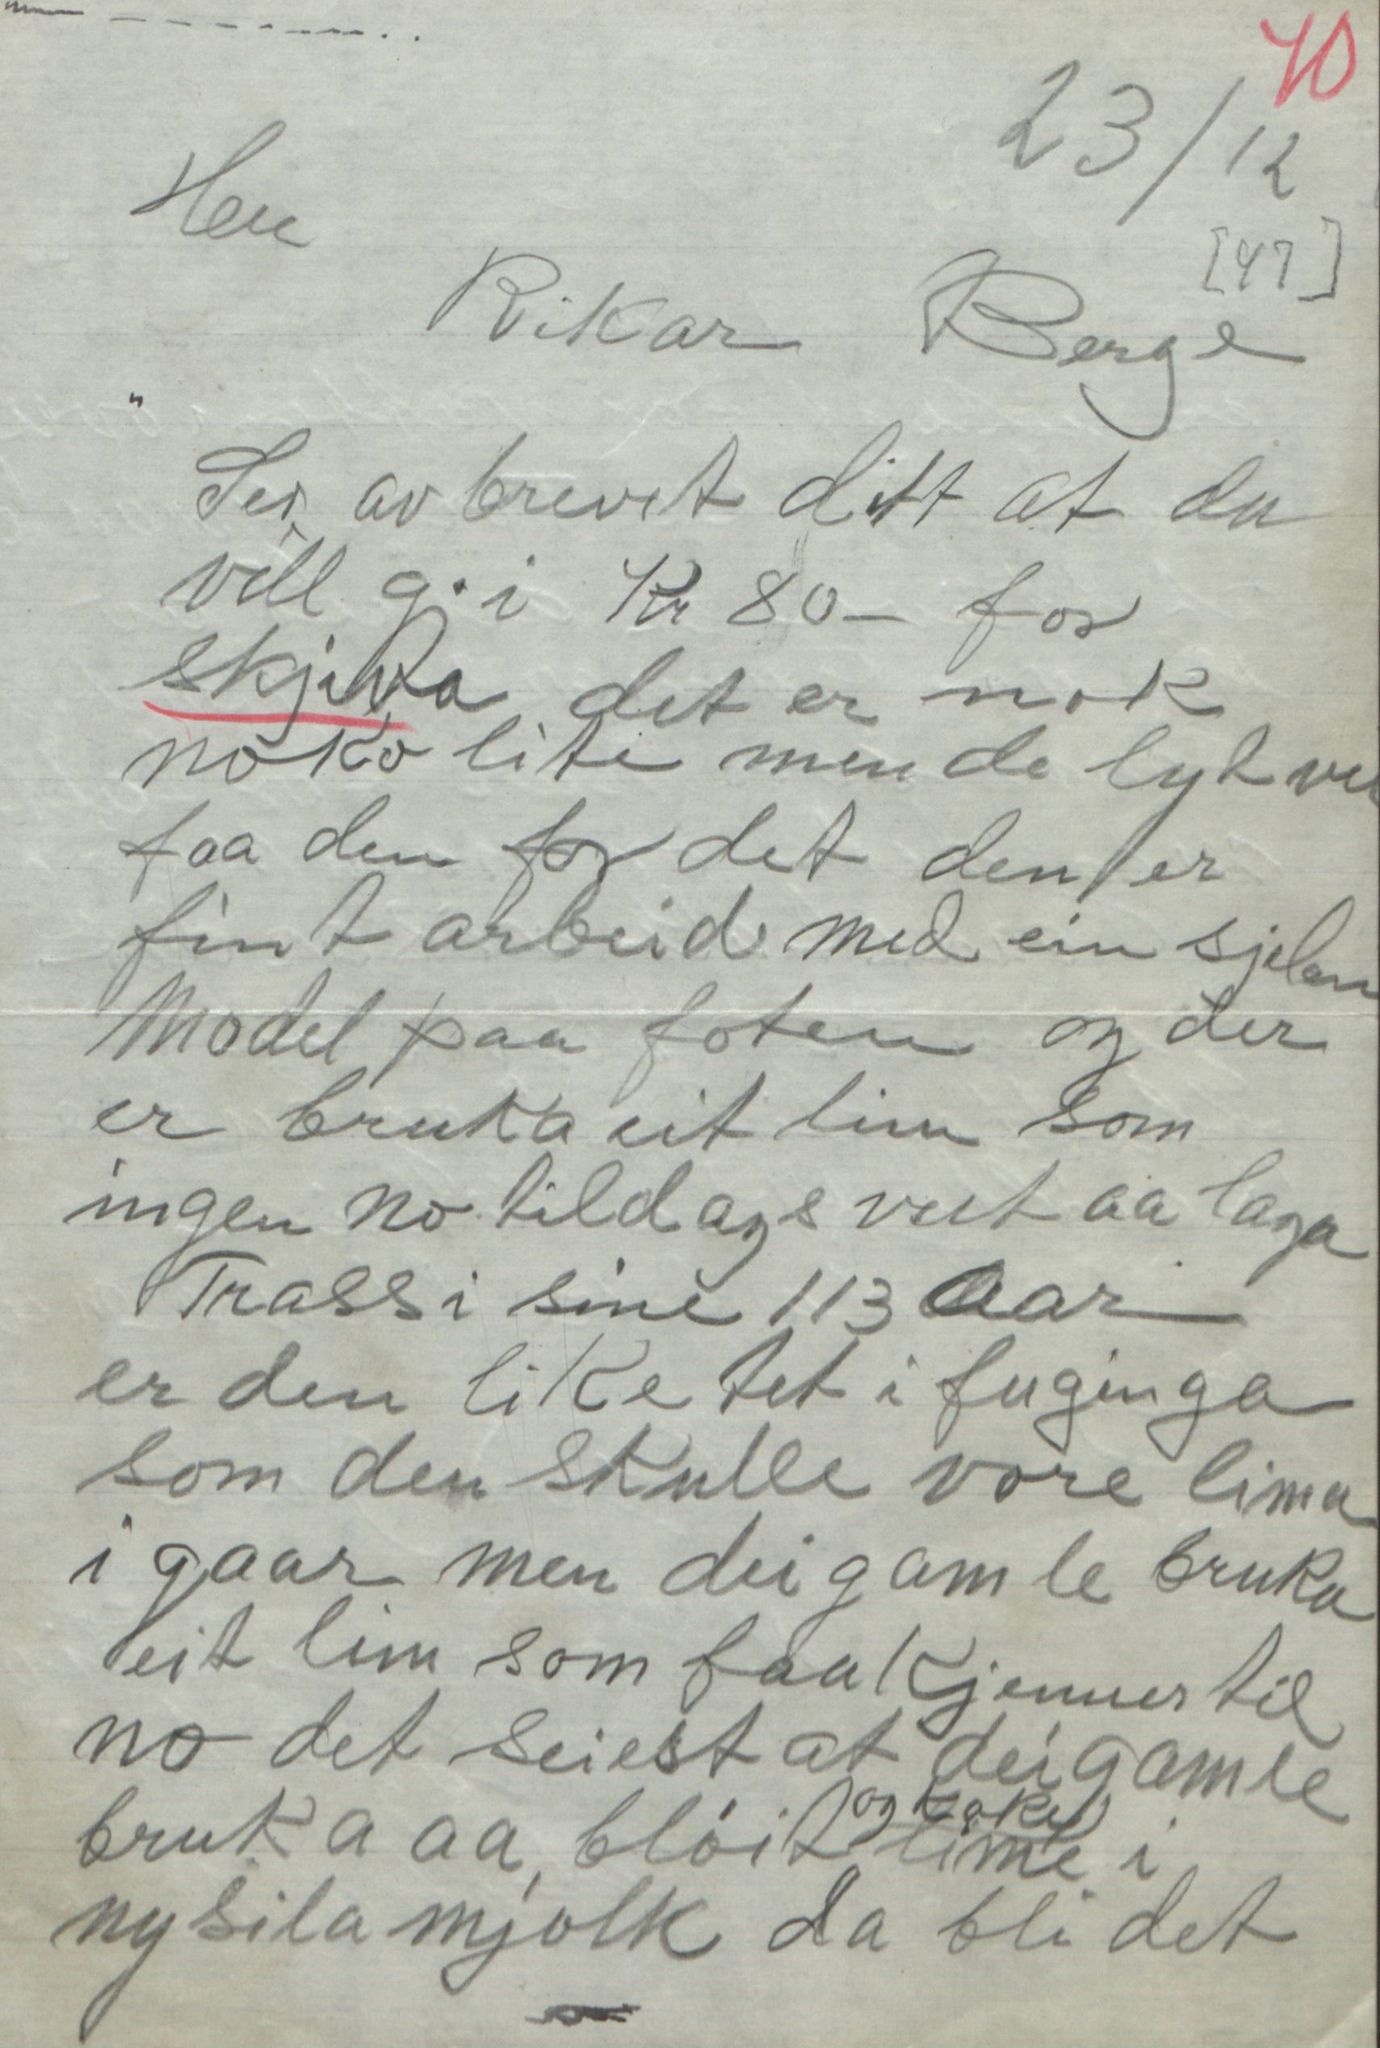 40
23/12
[47]
Herr
Rikar Berge
Ser av brevet ditt at du
vill gi Kr 80- for
skjiva det er nok
noko lite men de lyt vel
faa den for det den er
fint arbeid med ein sjelan
Model paa foten og der
er bruka eit lim som
ingen no tildags veet aa laga
Trass i sine 113 Aar
er den like tet i fuginga
som den skulle vore lima
i gaar men dei gamle bruka
eit lim som faa kjenner til
no det seiest at dei gamle
og koke
bruka aa bløit lime i
nysila mjolk da bli det